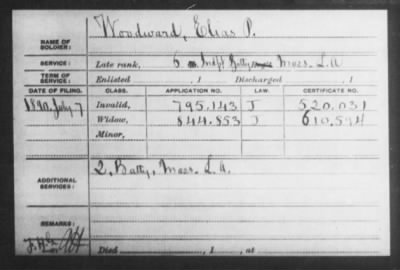 NAME OF SOLDIER: Woodward, Elias P.
SERVICE: Late rank, 6 Indpt Batty Mass. L. A
TERM OF SERVICE: Enlisted , 1 Discharged , 1
DATE OF FILING. CLASS. APPLICATION NO. LAW. CERTIFICATE NO.
1890, July 7 Invalid, 795.143 J 520.031
Widow, 844.853 J 610.594
Minor,
ADDITIONAL SERVICES: 2, Batty, Mass. L. A.
REMARKS:
Died , 1 , at